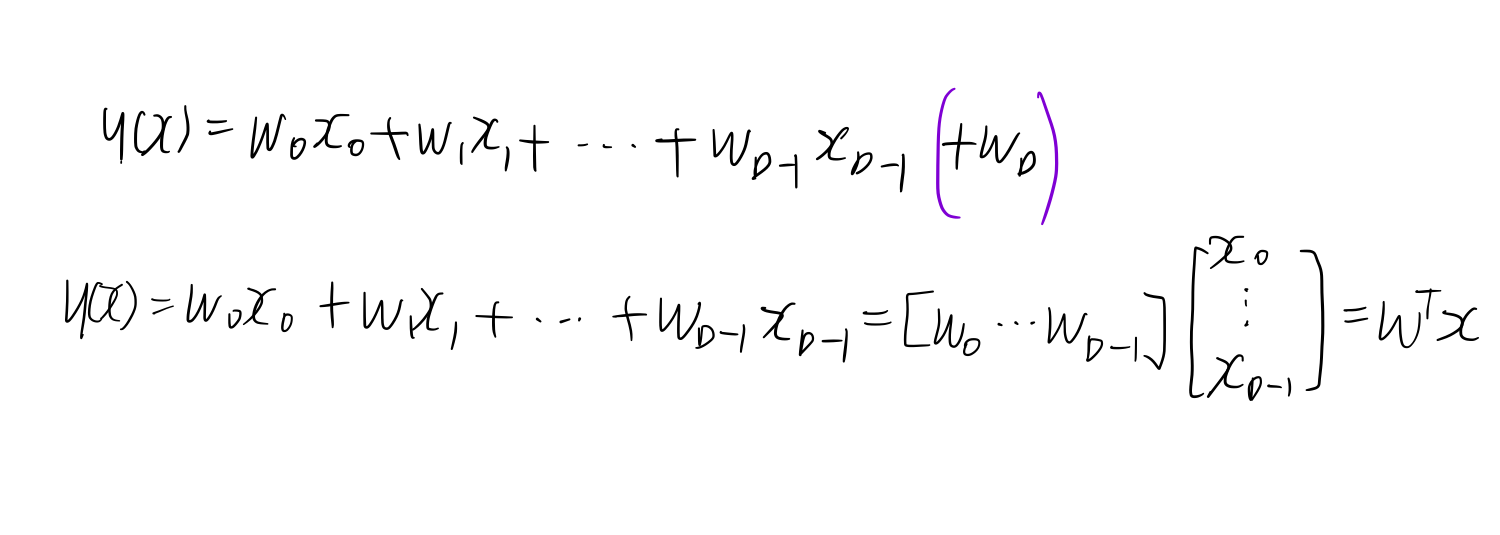 y(x) = w₀x₀ + w₁x₁ + ⋯ + w_{D-1} x_{D-1} (+w_D)
y(x) = w₀x₀ + w₁x₁ + ⋯ + w_{D-1} x_{D-1} = [w₀ ⋯ w_{D-1}] [x₀ ⋮ x_{D-1}] = wᵀx